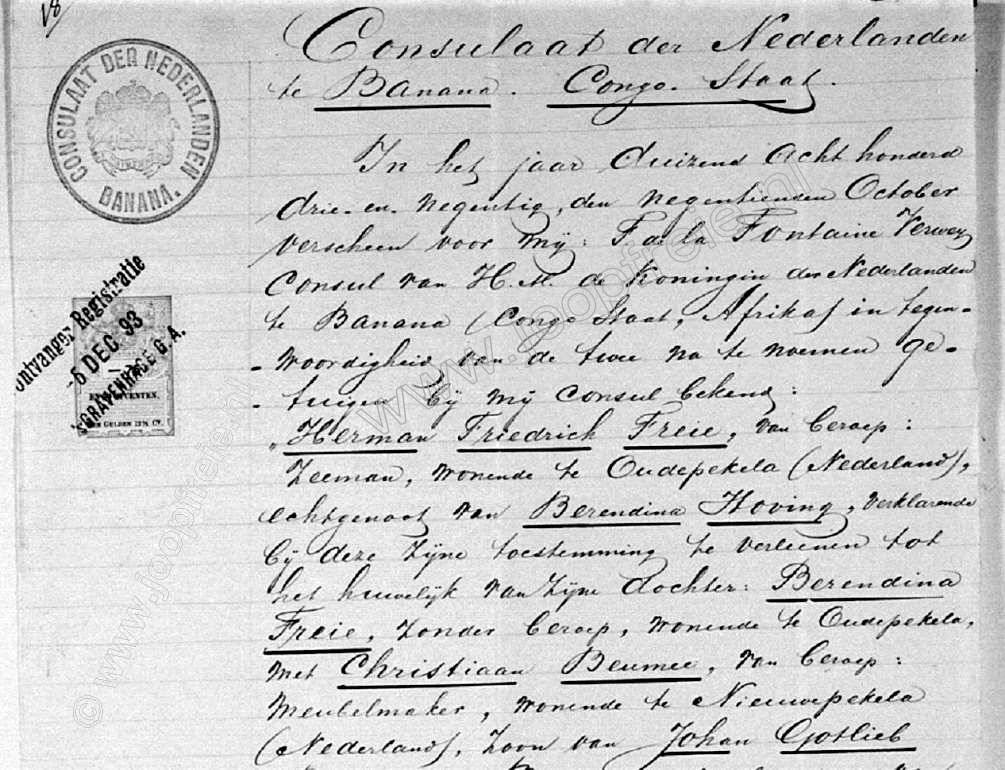 18
Consulaat der Nederlanden
te Banana. Congo. Staat.
CONSULAAT DER NEDERLANDEN
BANANA.
In het jaar duizend acht honderd
drie-en-negentig, den negentienden October
verscheen voor mij: F. de la Fontaine Verwey
Consul van H.M. de Koningin der Nederlanden
te Banana (Congo Staat, Afrika) in tegen-
-woordigheid van de twee na te noemen ge-
-tuigen bij mij Consul bekend:
Ontvanger Registratie
-6 DEC 93
'SGRAVENHAGE G.A.
CENTEN.
GULDEN
„Herman Friedrich Freie, van beroep:
Zeeman, wonende te Oudepekela (Nederland),
echtgenoot van Berendina Hoving, verklarende
bij deze zijne toestemming te verleenen tot
het huwelijk van zijne dochter: Berendina
Freie, zonder beroep, wonende te Oudepekela,
met Christiaan Beumee, van beroep:
Meubelmaker, wonende te Nieuwepekela
(Nederland), zoon van Johan Gotlieb
© www.joopfreie.nl
www.joopfreie.nl